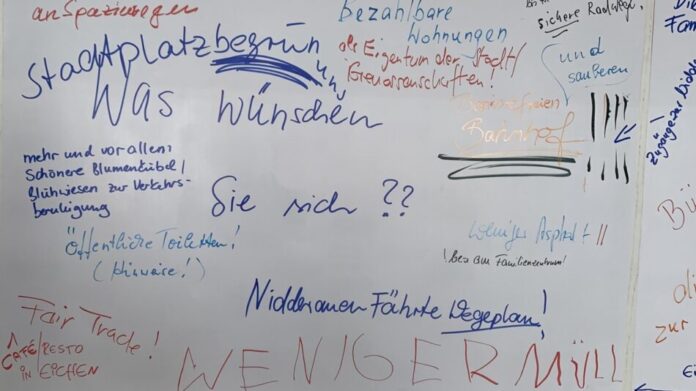 an Spazierwegen
Stadtplatzbegrünung
Was wünschen
Sie sich ??
Bezahlbare
Wohnungen
als Eigentum der Stadt/
Genossenschaften!
sichere Radwege!
und
sauberen
Barrierefreien
Bahnhof
mehr und vor allem
Schönere Blumenkübel/
Blühwiesen zur Verkehrs-
beruhigung
Öffentliche Toiletten!
(Hinweise!)
weniger Asphalt
! Bes am Familienzentrum!
Niddera
Fährte Wegeplan!
Fair Trade!
1 Café/RESTO
IN EICHEN
WENIGER MÜLL
Die
Fam
zur